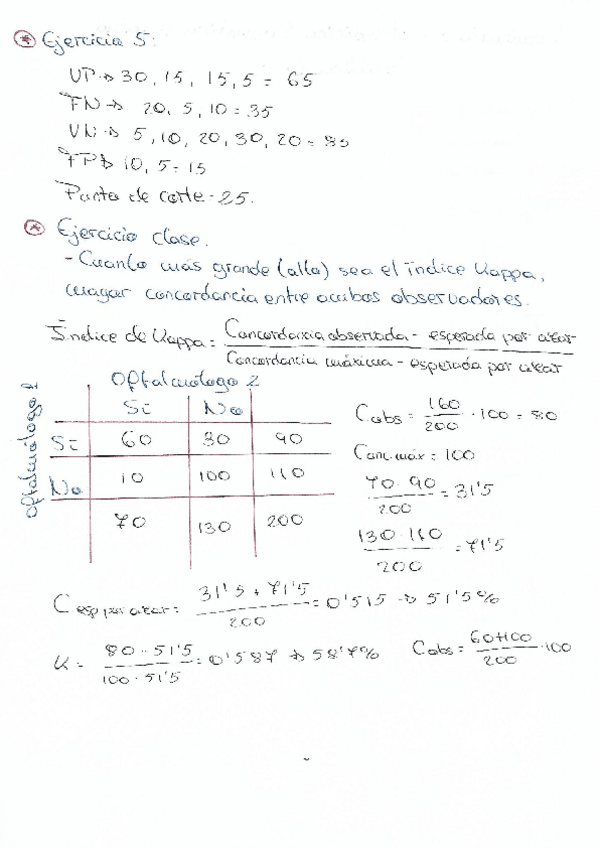 * Ejercicio 5:
VP → 30, 15, 15, 5 = 65
FN → 20, 5, 10 = 35
VN → 5, 10, 20, 30, 20 = 85
FP → 10, 5 = 15
Punto de corte - 25.
* Ejercicio clase.
- Cuanto más grande (alto) sea el índice Kappa,
mayor concordancia entre ambos observadores.
Índice de Kappa = Concordancia observada - esperada por azar
Concordancia máxima - esperada por azar
Oftalmólogo 2
Oftalmólogo 1
Sí No
Sí 60 30 90
No 10 100 110
70 130 200
C obs = 160/200 · 100 = 80
Conc. máx = 100
70 · 90 / 200 = 31'5
130 · 110 / 200 = 71'5
C esp por azar = 31'5 + 71'5 / 200 = 0'515 → 51'5%
K = 80 - 51'5 / 100 - 51'5 = 0'587 → 58'7%
C obs = 60+100 / 200 · 100